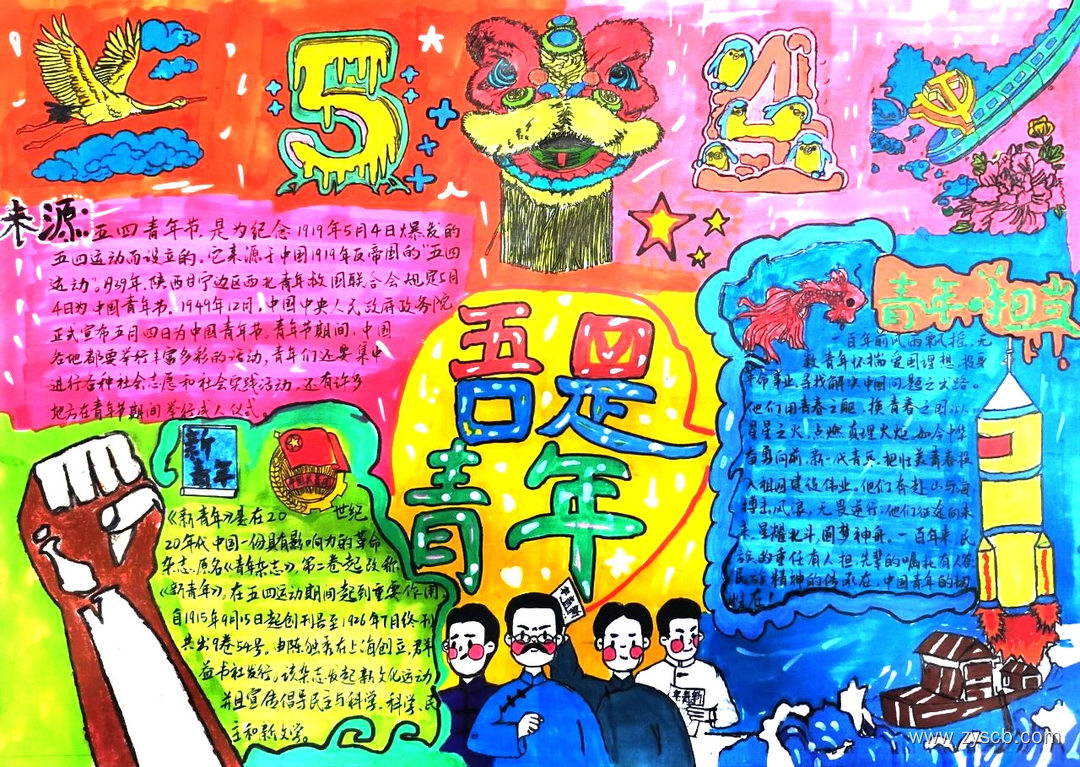 5
4
来源:
五四青年节,是为纪念1919年5月4日爆发的
五四运动而设立的,它来源于中国1919年反帝国的"五四
运动".1939年,陕西甘宁边区西北青年救国联合会规定5月
4日为中国青年节.1949年12月,中国中央人民政府政务院
正式宣布五月四日为中国青年节.青年节期间,中国
各地都要举行丰富多彩的活动,青年们还要集中
进行各种社会志愿和社会实践活动,还有许多
地方在青年节期间举行成人仪式。
五四
是
青年
青年·担当
一百年前风雨飘摇,无
数青年怀揣爱国理想,投身
革命事业,寻找解决中国问题之出路。
他们用青春之躯,换青春之国,以
星星之火,点燃真理火炬,如今中华
奋勇向前,新一代青年,把壮美青春投
入祖国建设伟业,他们奔赴山与海
搏击风浪,无畏逆行;他们征途向未
来,星耀北斗,圆梦神舟。一百年来,民
族的重任有人担,先辈的嘱托有人
民族精神的传承在,中国青年的
在!
新
青年
《新青年》是在20世纪
20年代中国一份具有影响力的革命
杂志.原名《青年杂志》,第二卷起改称
《新青年》,在五四运动期间起到重要作用
自1915年9月15日起创刊号至1926年7月终刊
共出9卷54号.由陈独秀在上海创立,群
益书社发行,该杂志发起新文化运动
并且宣传倡导民主与科学,科学,民
主和新文学。
新青年
新青年
www.zyscb.com